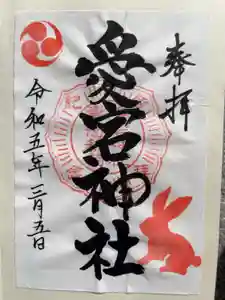 奉拝
愛宕神社
令和五年三月五日